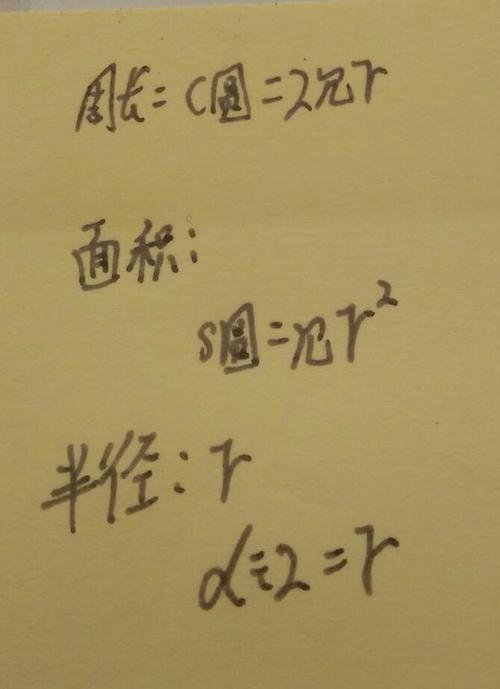 周长=C圆=2πr
面积:
S圆=πr²
半径:r
d÷2=r